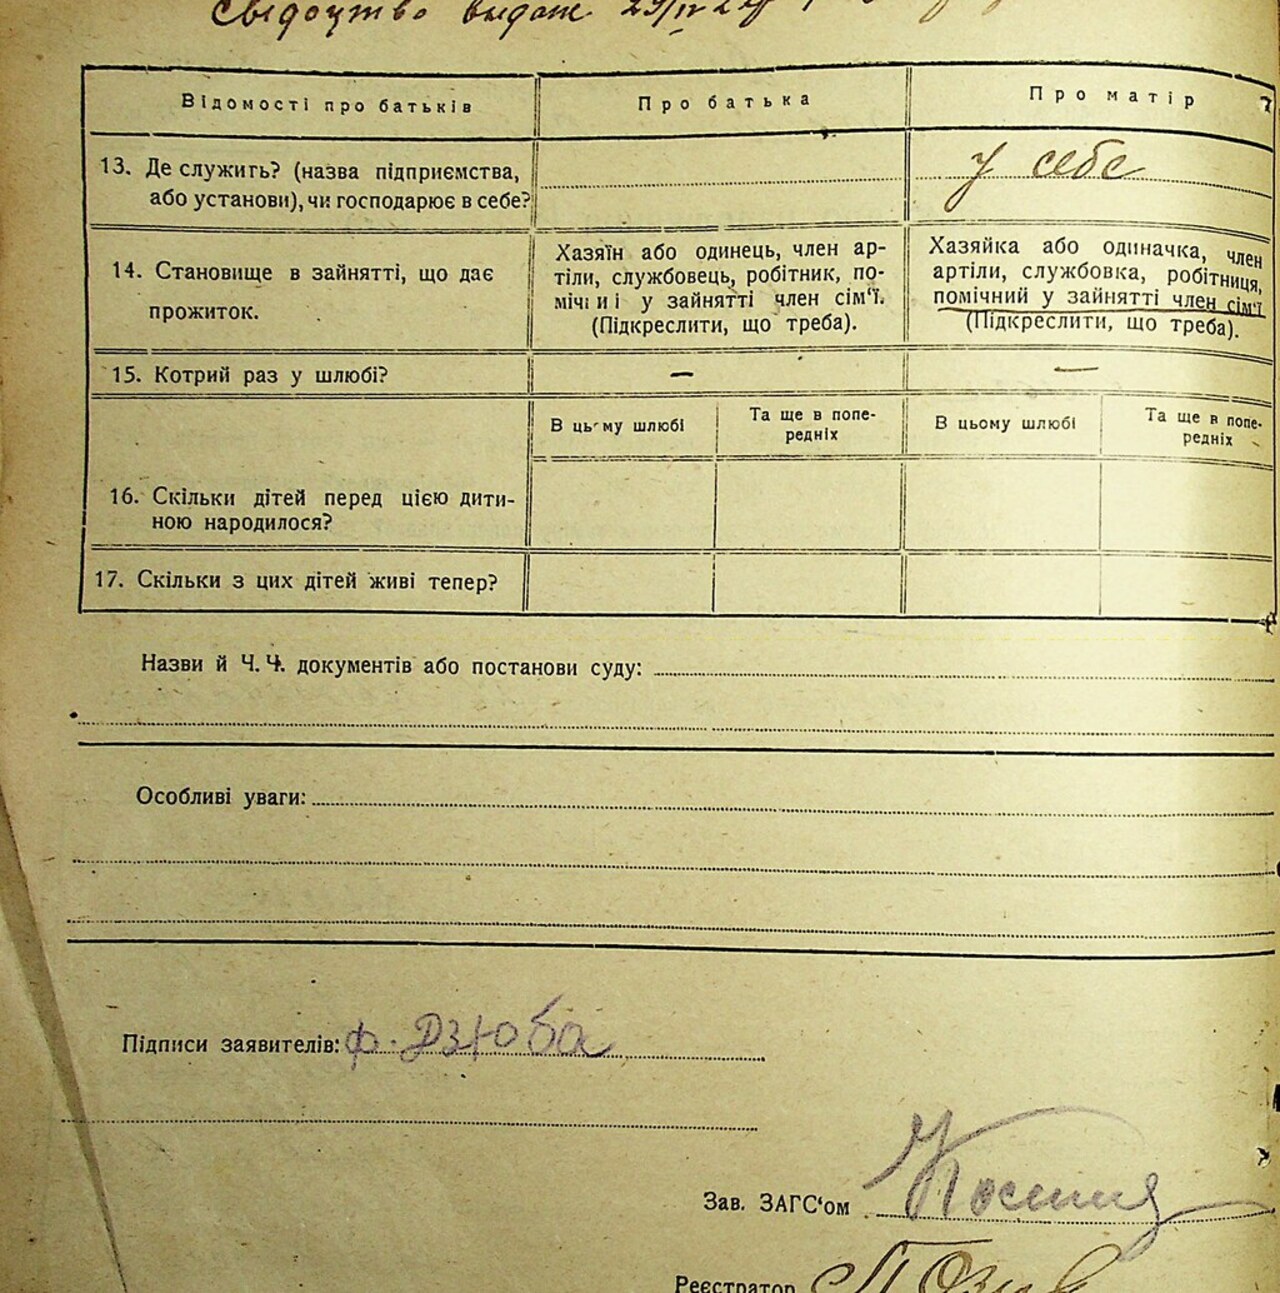 Свідоцтво видане 29/IV
Відомості про батьків Про батька Про матір
13. Де служить? (назва підприємства, у себе
або установи), чи господарює в себе?
Хазяїн або одинець, член ар- Хазяйка або одиначка, член
14. Становище в зайнятті, що дає тіли, службовець, робітник, по- артіли, службовка, робітниця,
прожиток. мічниі у зайнятті член сім'ї. помічний у зайнятті член сім'ї
(Підкреслити, що треба). (Підкреслити, що треба).
15. Котрий раз у шлюбі? — —
В цьму шлюбі Та ще в попе- В цьому шлюбі Та ще в попе-
редніх редніх
16. Скільки дітей перед цією дити-
ною народилося?
17. Скільки з цих дітей живі тепер?
Назви й Ч. Ч. документів або постанови суду:
Особливі уваги:
Підписи заявителів: Ф. Дзюба
Зав. ЗАГС'ом
Реєстратор